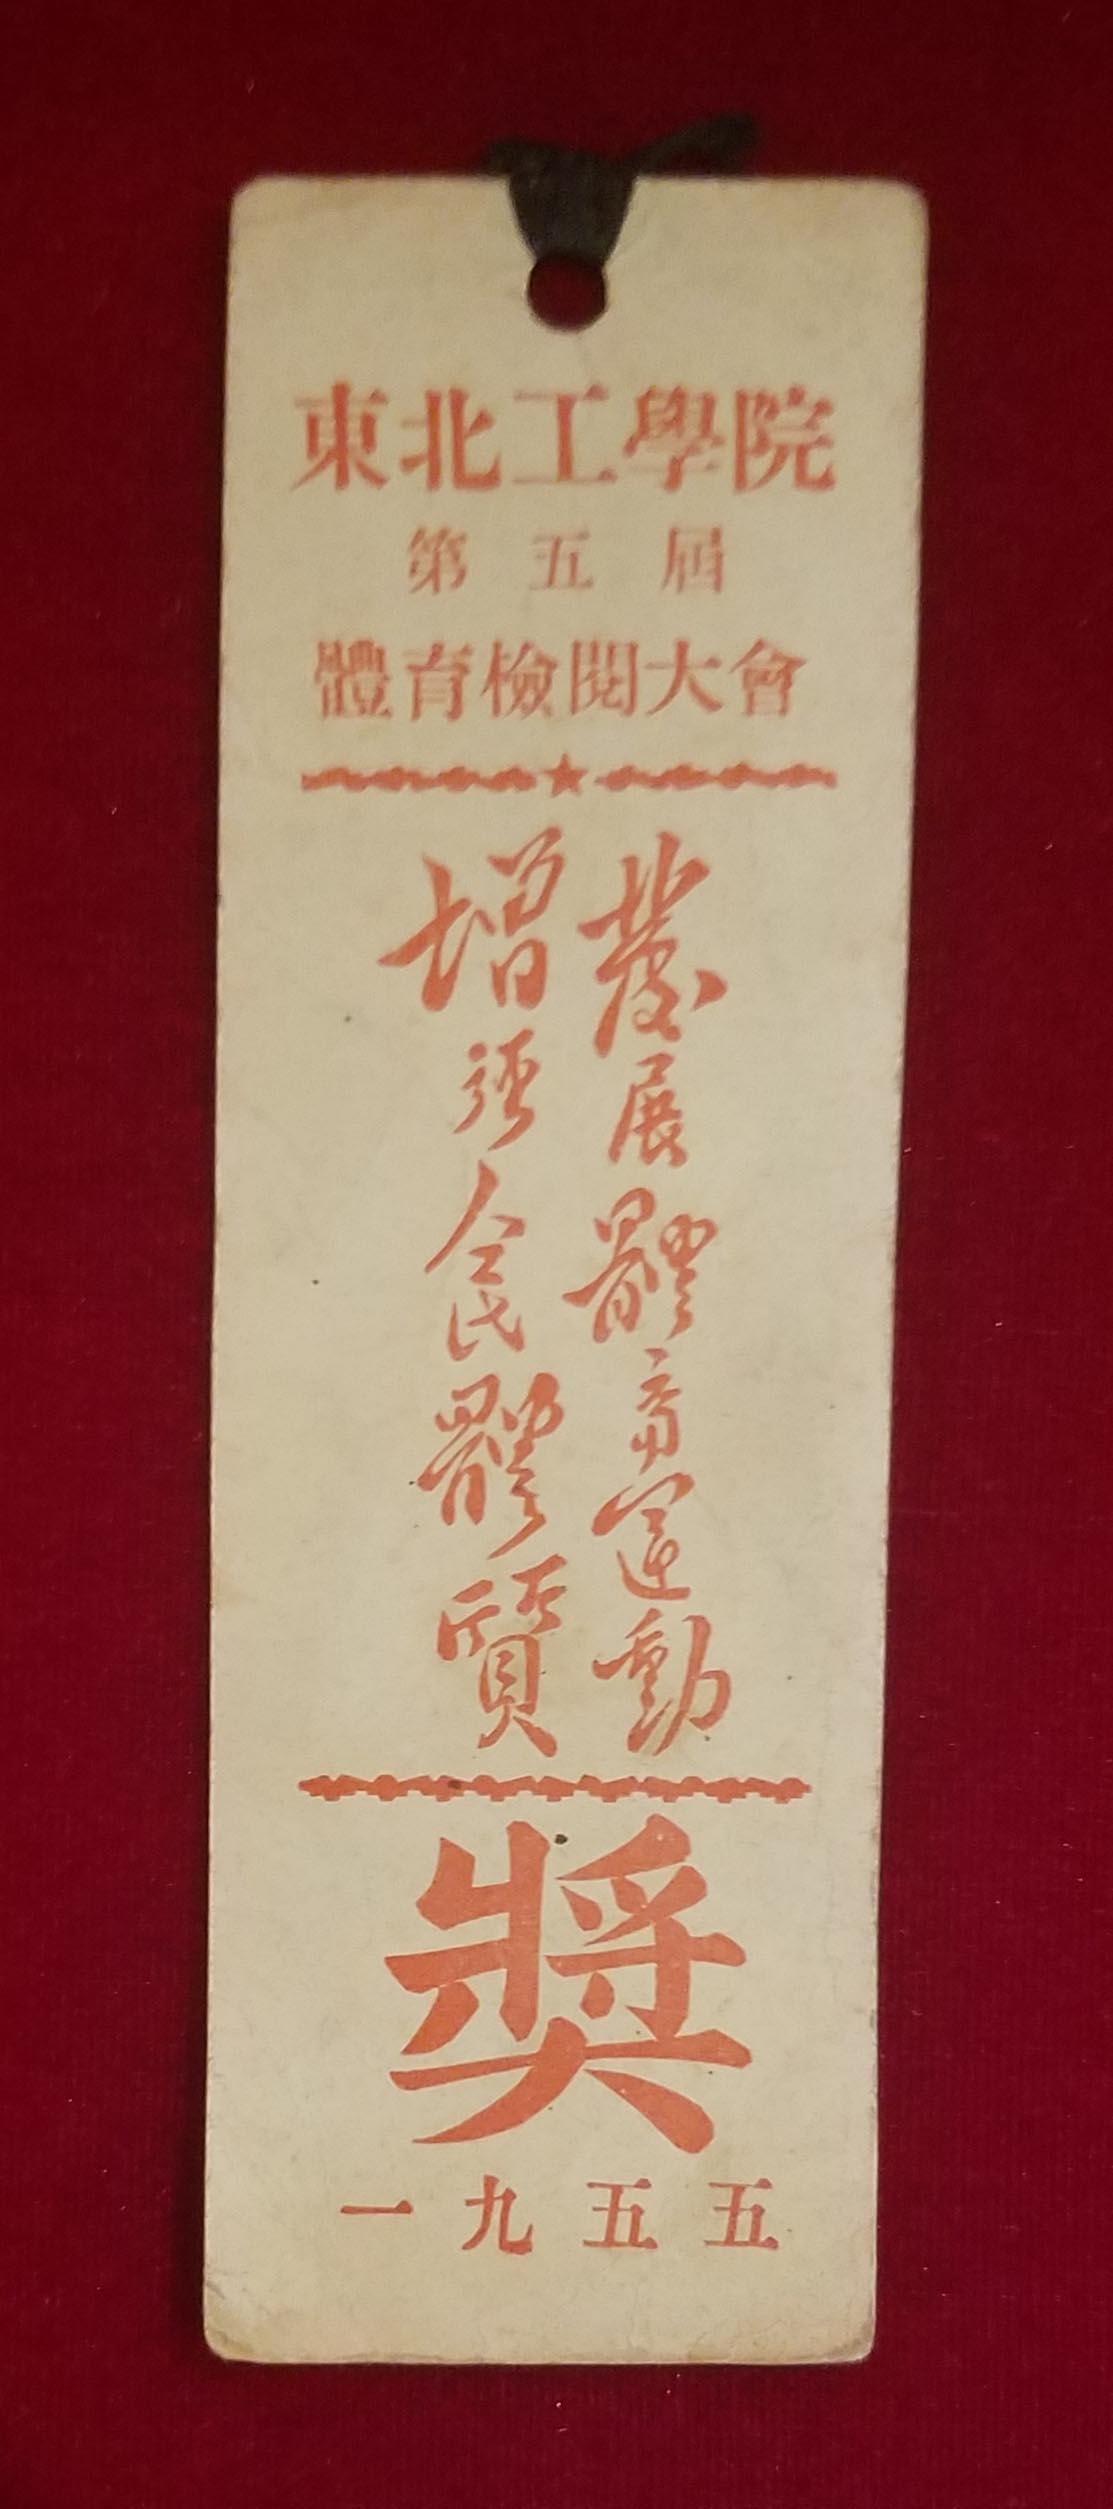 東北工學院
第五屆
體育檢閱大會
發展體育運動
增强人民體質
獎
一九五五